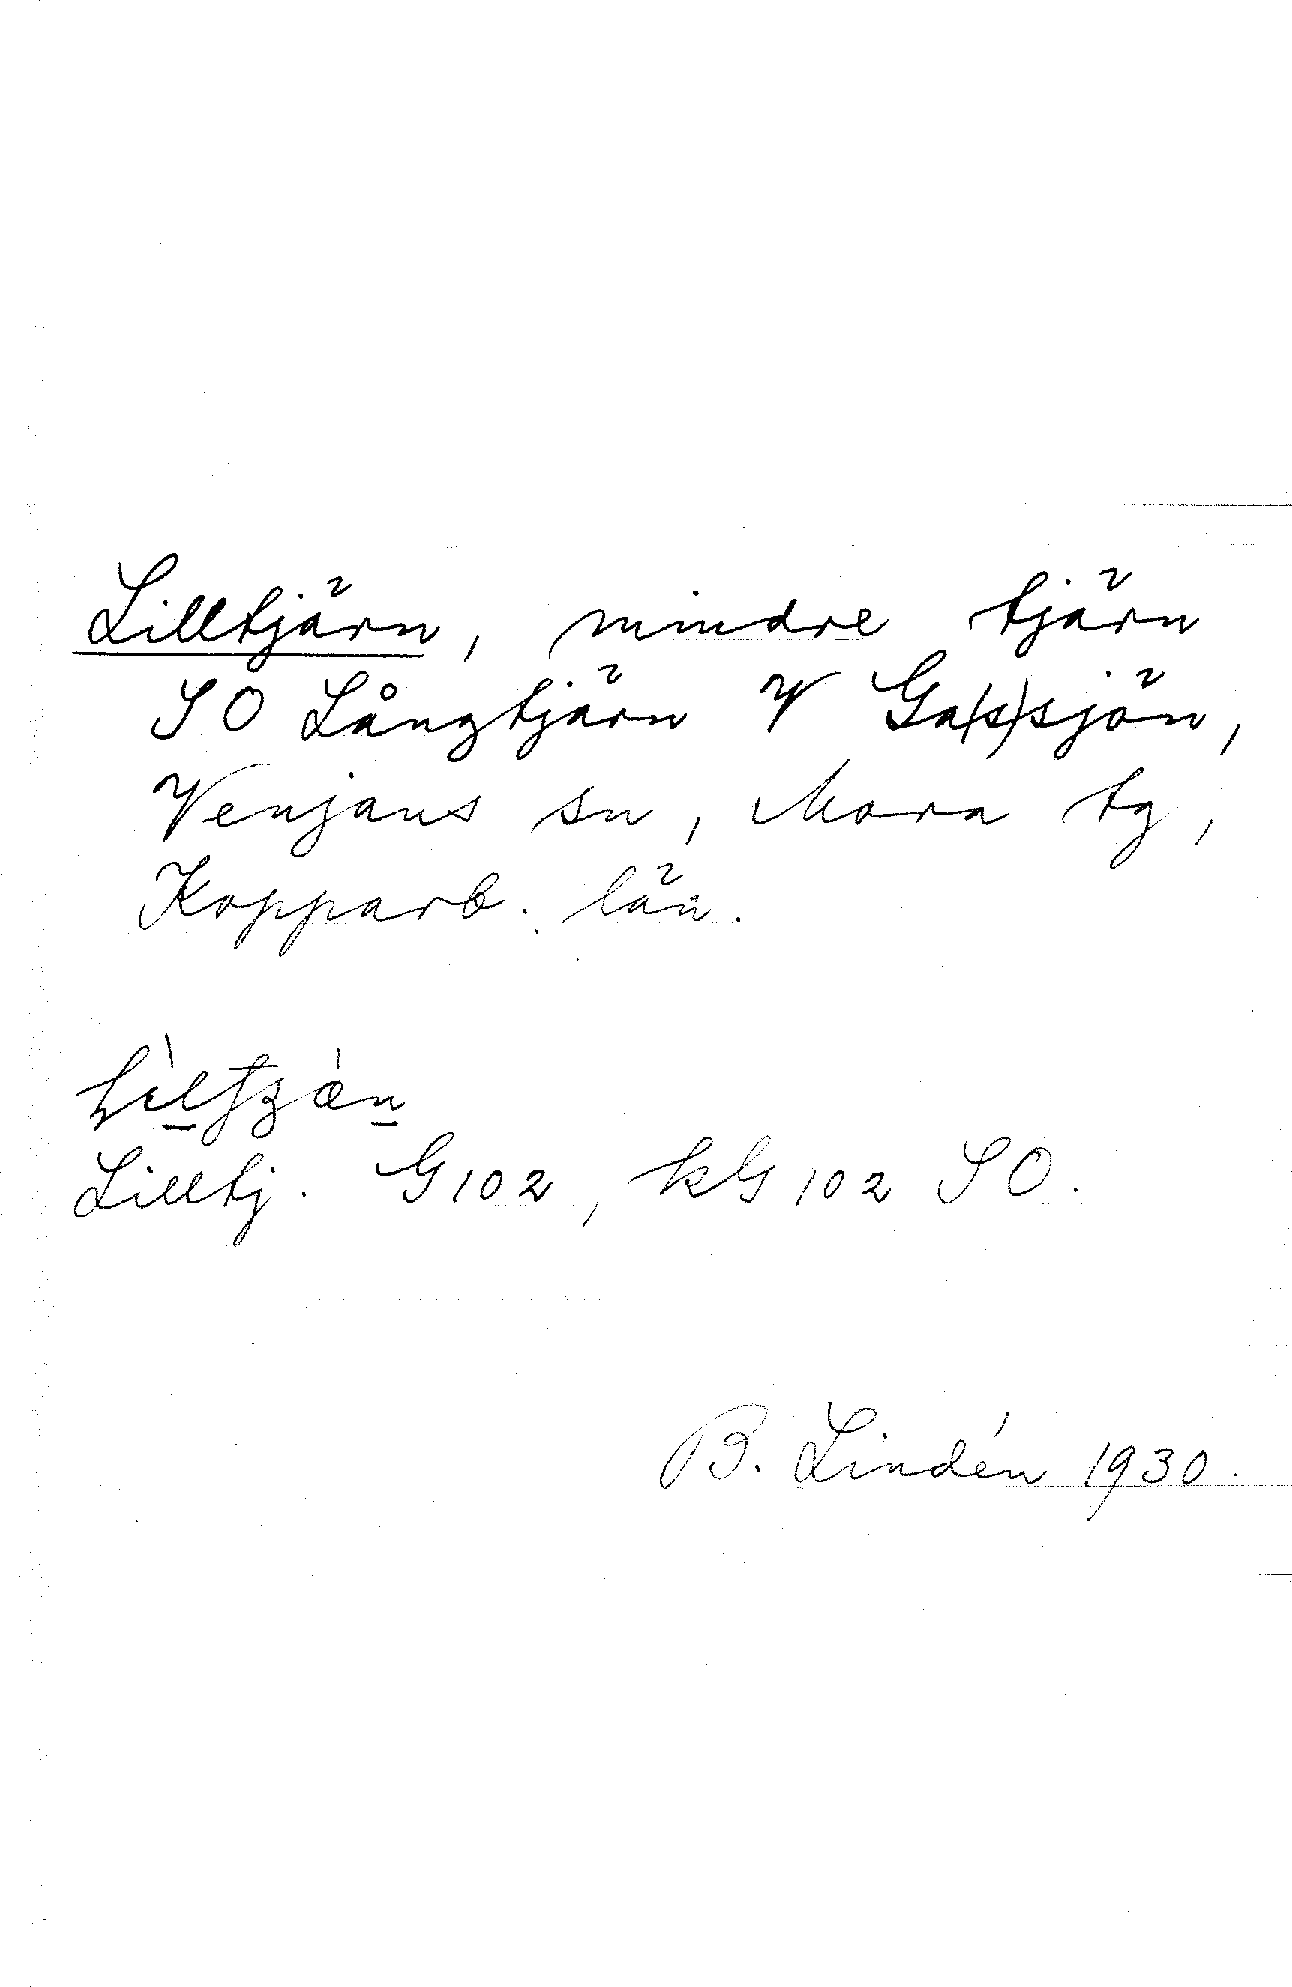 Lilltjärn, mindre tjärn
SO Långtjärn V Ga(s)sjön,
Venjans sn, Mora tg,
Kopparb. län.
Lilltj. G102, kG 102 SO.
B. Lindén 1930.